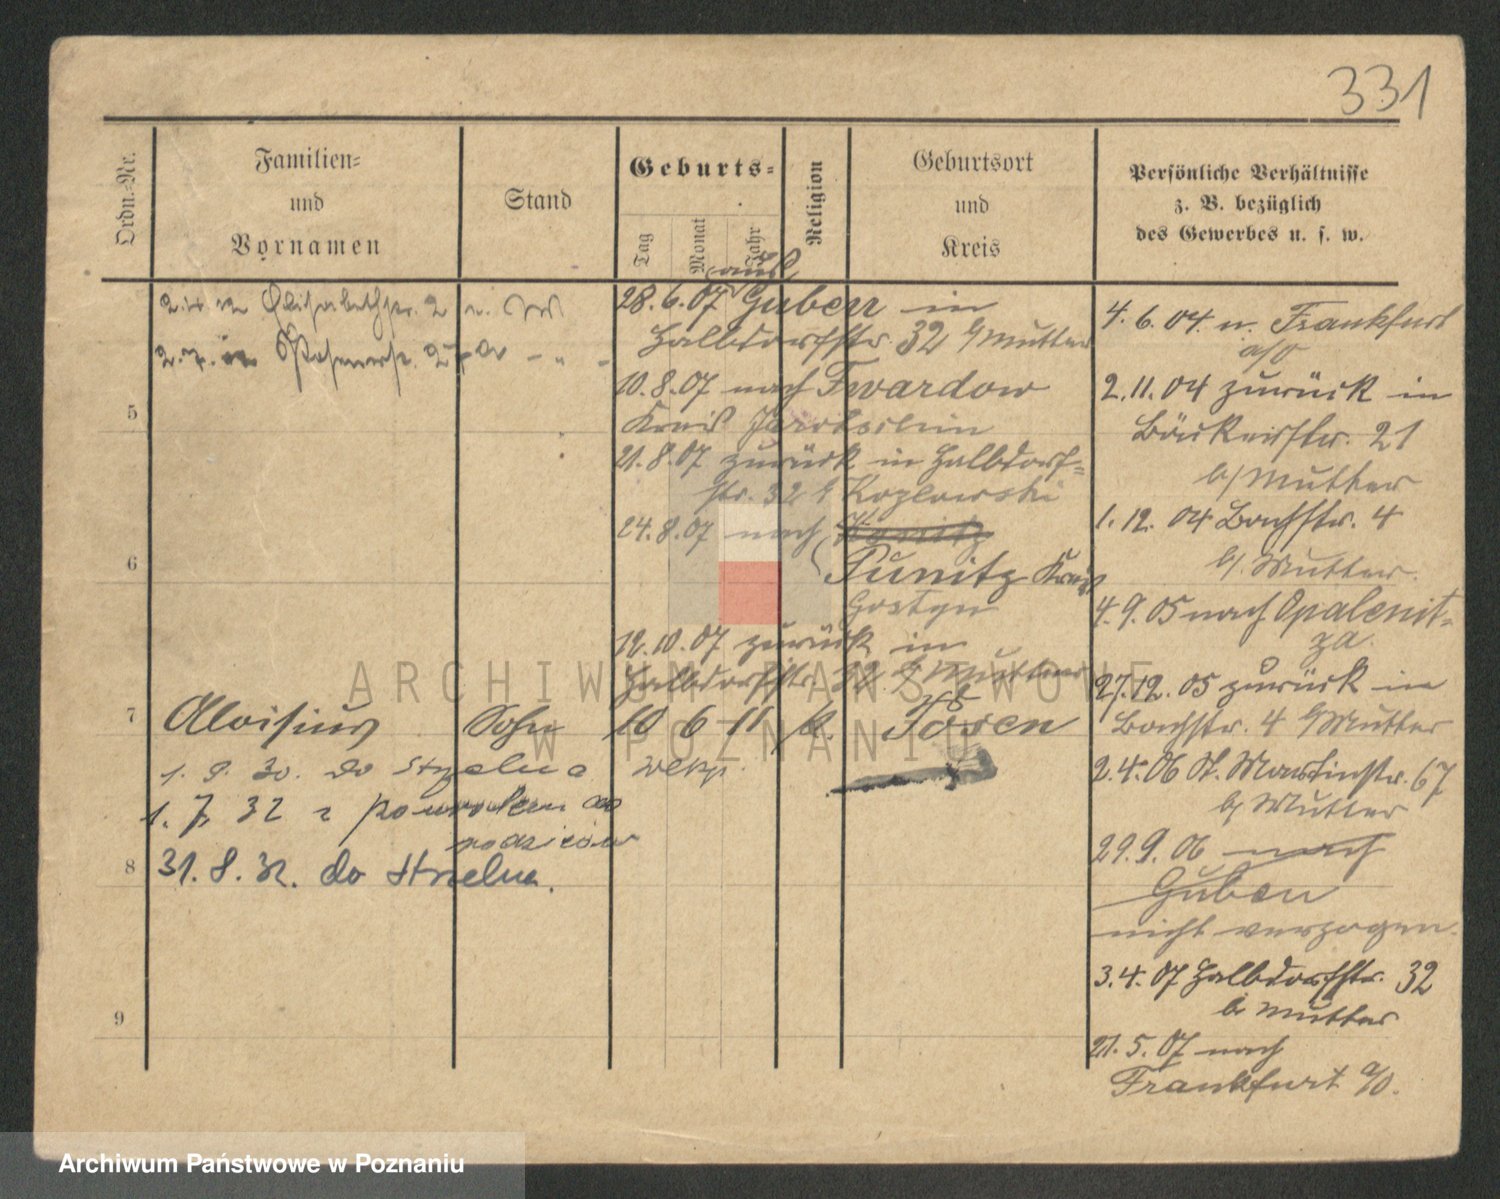 331
Ordn.=Nr.
Familien=
und
Vornamen
Stand
Geburts=
Tag
Monat
Jahr
Religion
Geburtsort
und
Kreis
Persönliche Verhältnisse
z. B. bezüglich
des Gewerbes u. s. w.
2. 4. 12 Elisabethstr. 2
2. 7. Posenerstr.
5
6
7
Aloisius Sohn 10 6 11 k. Posen
1. 9. 30. do Strzelna
1. 7. 32 z powrotem do
rodziców
8
31. 8. 32. do Strzelna.
9
28. 6. 07 aus Guben in
Halbdorfstr. 32 b/Mutter
10. 8. 07 nach Twardow
Kreis Jarotschin
21. 8. 07 zurück in Halbdorf=
str. 32 b Kozlowski
24. 8. 07 nach
Punitz Kreis
Gostyn
12. 10. 07 zurück in
Halbdorfstr. 32 b Mutter
4. 6. 04 n. Frankfurt
a/O
2. 11. 04 zurück in
Bäckerstr. 21
b/Mutter
1. 12. 04 Bachstr. 4
b/. Mutter.
4. 9. 05 nach Opalenit=
za.
27. 12. 05 zurück in
Bachstr. 4 b/Mutter
2. 4. 06 St. Martinstr. 67
b/ Mutter
29. 9. 06 nach
Guben
nicht verzogen.
3. 4. 07 Halbdorfstr. 32
b Mutter
21. 5. 07 nach
Frankfurt a/O.
ARCHIWUM PAŃSTWOWE
W POZNANIU
Archiwum Państwowe w Poznaniu